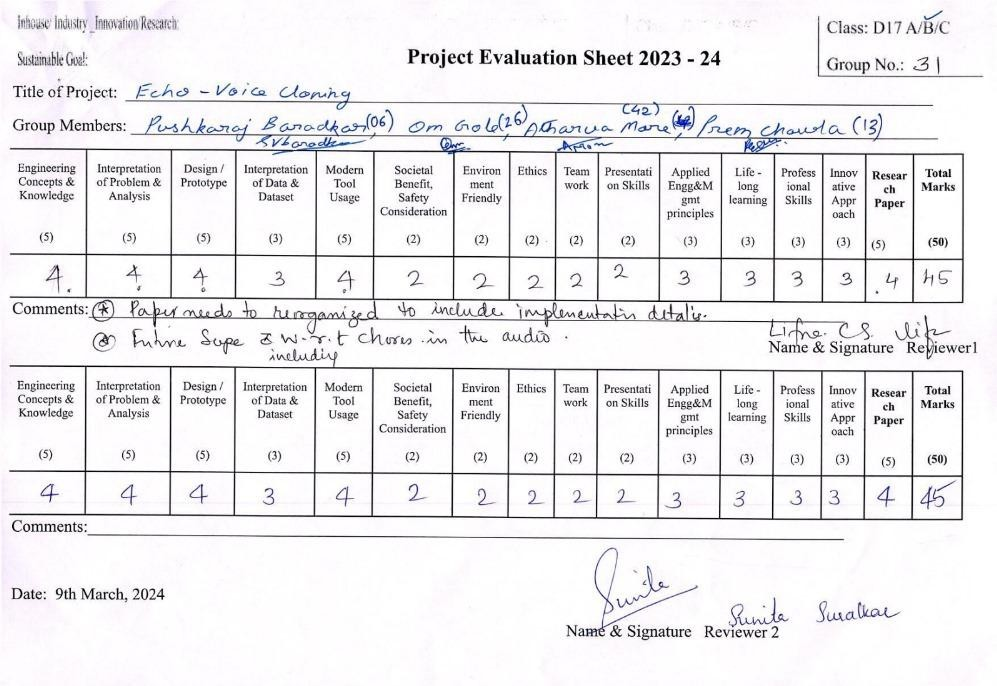 Inhouse/ Industry_Innovation/Research:
Sustainable Goal:
Class: D17 A/B/C
Group No.: 31
Project Evaluation Sheet 2023 - 24
Title of Project: Echo - Voice Cloning
Group Members: Pushkaraj Baradkar(06) Om Gole(26), Atharva More (42), Prem Chawla (13)
Engineering Concepts & Knowledge (5) | Interpretation of Problem & Analysis (5) | Design / Prototype (5) | Interpretation of Data & Dataset (3) | Modern Tool Usage (5) | Societal Benefit, Safety Consideration (2) | Environ ment Friendly (2) | Ethics (2) | Team work (2) | Presentati on Skills (2) | Applied Engg&M gmt principles (3) | Life - long learning (3) | Profess ional Skills (3) | Innov ative Appr oach (3) | Resear ch Paper (5) | Total Marks (50)
4 4 4 3 4 2 2 2 2 2 3 3 3 3 4 45
Comments: Paper needs to reorganized to include implementatin details.
w.r.t in the audio.
including
Name & Signature Reviewer1
Engineering Concepts & Knowledge (5) | Interpretation of Problem & Analysis (5) | Design / Prototype (5) | Interpretation of Data & Dataset (3) | Modern Tool Usage (5) | Societal Benefit, Safety Consideration (2) | Environ ment Friendly (2) | Ethics (2) | Team work (2) | Presentati on Skills (2) | Applied Engg&M gmt principles (3) | Life - long learning (3) | Profess ional Skills (3) | Innov ative Appr oach (3) | Resear ch Paper (5) | Total Marks (50)
4 4 4 3 4 2 2 2 2 2 3 3 3 3 4 45
Comments:
Date: 9th March, 2024
Sunita
Sunita Suralkar
Name & Signature Reviewer 2